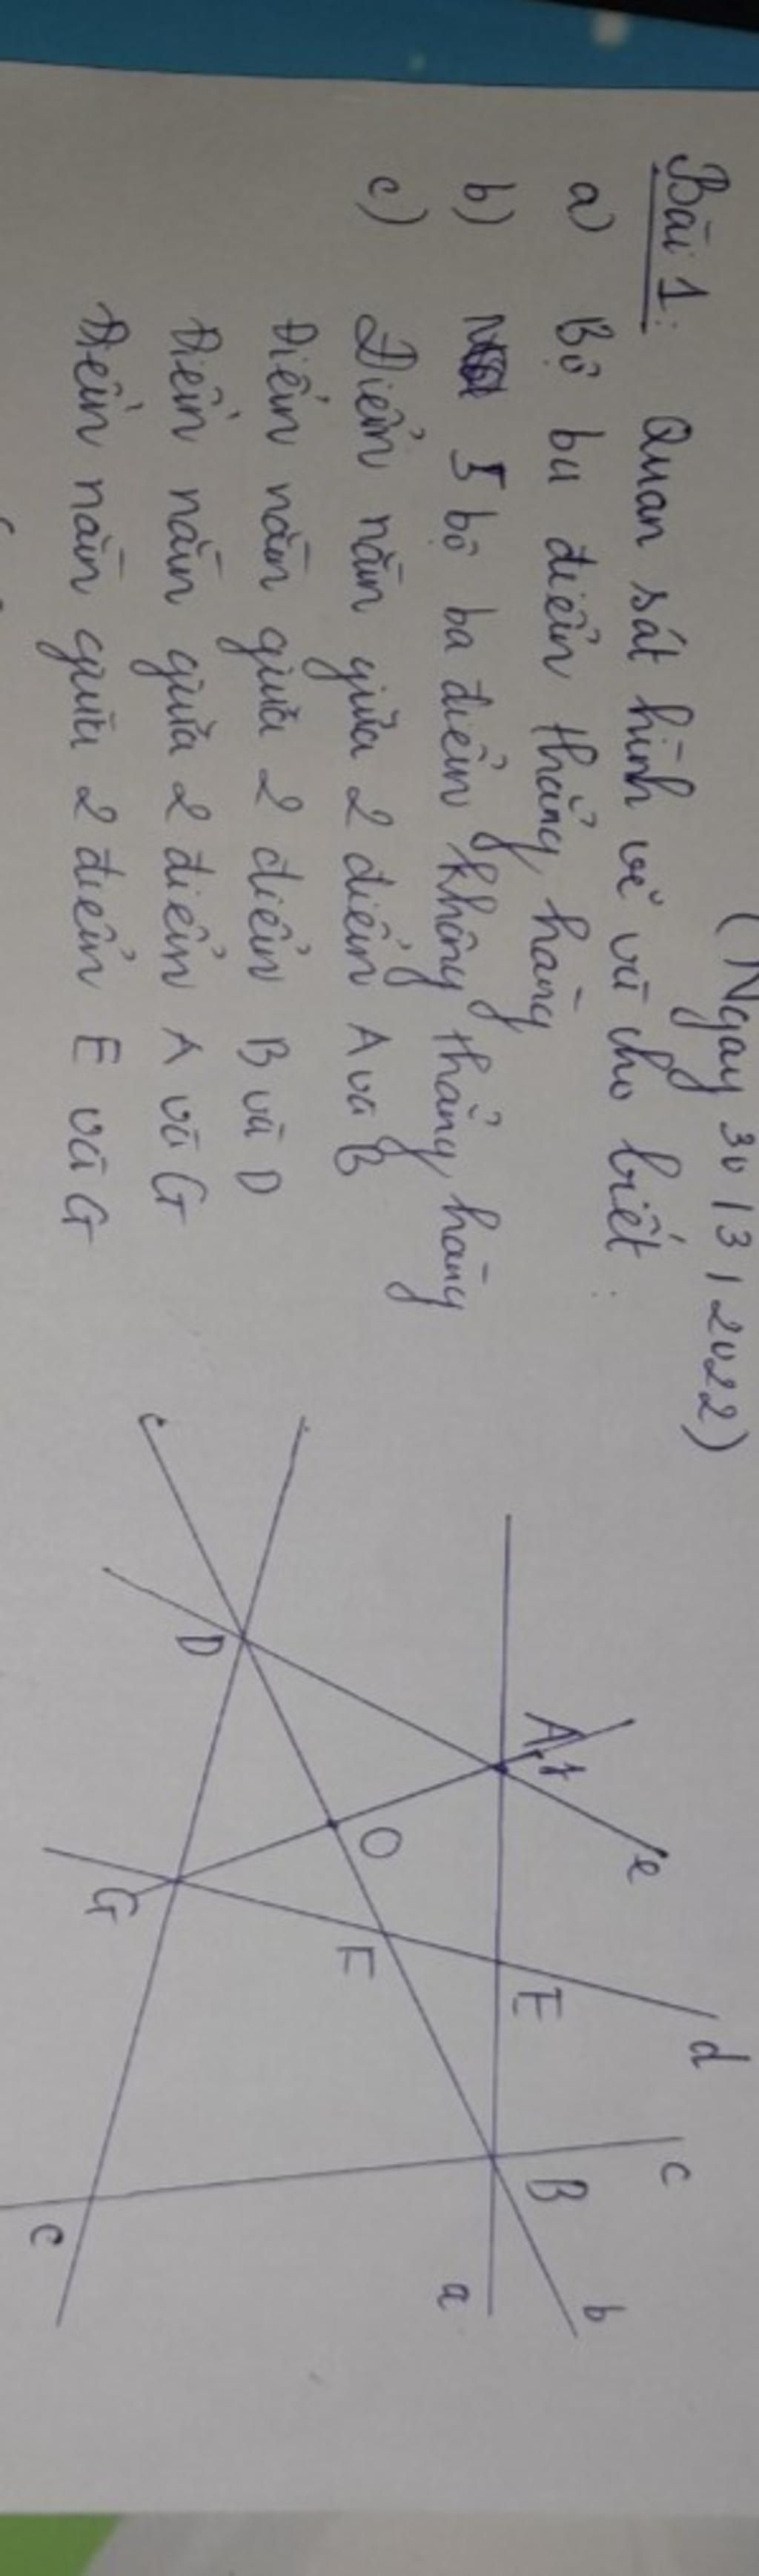 (Ngày 30/3/2022)
Bài 1: Quan sát hình vẽ và cho biết:
a) Bộ ba điểm thẳng hàng
b) 5 bộ ba điểm không thẳng hàng
c) Điểm nằm giữa 2 điểm A và B
Điểm nằm giữa 2 điểm B và D
Điểm nằm giữa 2 điểm A và G
Điểm nằm giữa 2 điểm E và G
A
f
e
d
c
b
a
E
B
O
F
D
G
C